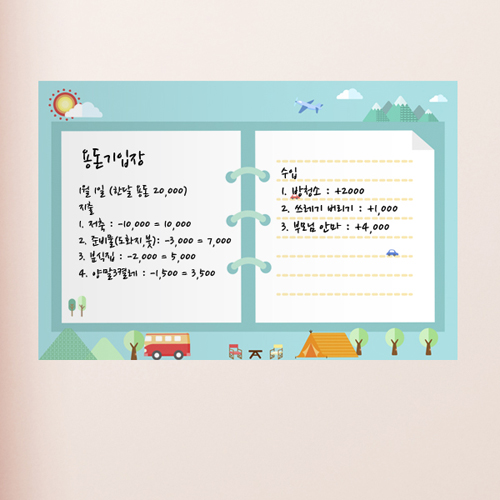 용돈기입장
1월 1일 (한달 용돈 20,000)
지출
1. 저축 : -10,000 = 10,000
2. 준비물(도화지,붓): -3,000 = 7,000
3. 분식집 : -2,000 = 5,000
4. 양말3켤레 : -1,500 = 3,500
수입
1. 방청소 : +2000
2. 쓰레기 버리기 : +1,000
3. 부모님 안마 : +4,000